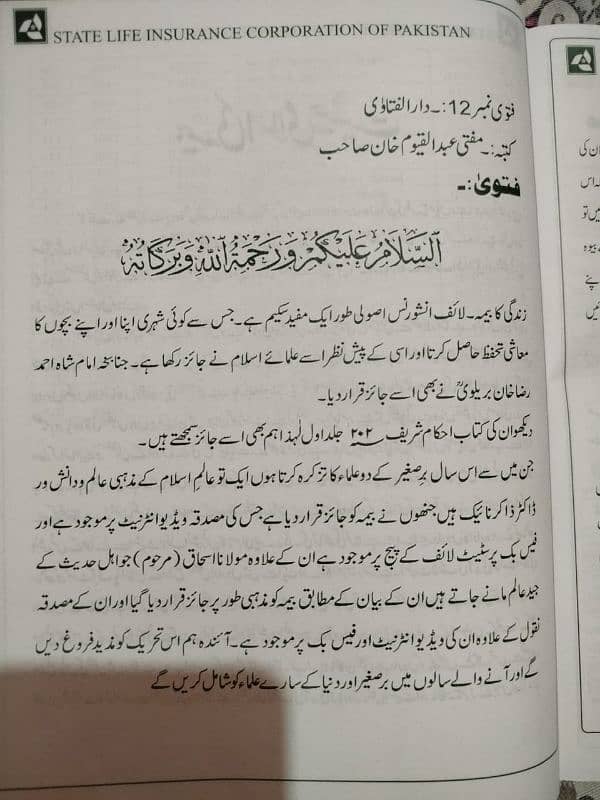 STATE LIFE INSURANCE CORPORATION OF PAKISTAN
فتویٰ نمبر 12:۔ دارالفتاویٰ
کتبہ:۔ مفتی عبدالقیوم خان صاحب
فتویٰ:۔
اَلسَّلَامُ عَلَيْكُمْ وَرَحْمَةُ اللّٰهِ وَبَرَكَاتُهُ
زندگی کا بیمہ۔ لائف انشورنس اصولی طور ایک مفید سکیم ہے۔ جس سے کوئی شہری اپنا اور اپنے بچوں کا
معاشی تحفظ حاصل کرتا اور اسی کے پیش نظر اسے علمائے اسلام نے جائز رکھا ہے۔ جنابخہ امام شاہ احمد
رضا خان بریلویؒ نے بھی اسے جائز قرار دیا۔
دیکھو ان کی کتاب احکام شریف ۲۰۲ جلد اول لہٰذا ہم بھی اسے جائز سمجھتے ہیں۔
جن میں سے اس سال برِصغیر کے دو علماء کا تزکرہ کرتا ہوں ایک تو عالمِ اسلام کے مذہبی عالم ودانش ور
ڈاکٹر ذاکر نائیک ہیں جنھوں نے بیمہ کو جائز قرار دیا ہے جس کی مصدقہ ویڈیو انٹرنیٹ پر موجود ہے اور
فیس بک پر سٹیٹ لائف کے پیج پر موجود ہے ان کے علاوہ مولانا اسحاق (مرحوم) جو اہل حدیث کے
جید عالم مانے جاتے ہیں ان کے بیان کے مطابق بیمہ کو مذہبی طور پر جائز قرار دیا گیا اور ان کے مصدقہ
نقول کے علاوہ ان کی ویڈیو انٹرنیٹ اور فیس بک پر موجود ہے۔ آئندہ ہم اس تحریک کو مذید فروغ دیں
گے اور آنے والے سالوں میں برصغیر اور دنیا کے سارے علماء کو شامل کریں گے